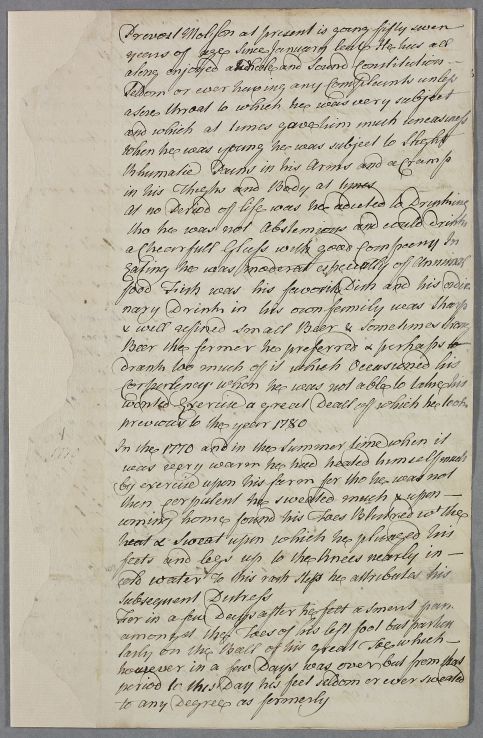 Provost Molison at present is going fifty seven
years of age since January last He has all
along enjoyed a whole and sound Constitution
seldom or ever having any Complaints unless
a sore throat to which he was very subject
and which at times gave him much uneasiness
When he was young he was subject to Slight
Rhumatic Pains in his Arms and a Cramp
in his Thighs and Body at times
At no Period of life was he adicted to Drinking
tho he was not Abstemious and could drink
a Chearfull Glass with good Company In
Eating he was moderat especially of Animal
food Fish was his favorite Dish and his ordi
nary Drink in his own family was Sharp
& will refined Small Beer & Sometimes strong
Beer the former he preferred & perhaps
drank too much of it which Occasioned his
Corpulency when he was not able to take his
wonted Exercise a great Deall of which he took
previous to the year 1780
In the 1770 and in the Summer time when it
was very warm he had heated himself much
by exercise upon his farm for tho he was not
then corpulent he sweated much & upon
coming home found his Toes Blistred wt the
heat & Sweat upon which he plunged his
feets and legs up to the knees nearly in
cold water To this rash Step he attributes his
Subsequent Distress
For in a few Days after he felt a smart pain
amongst the Toes of his left foot but particu
larly on the Ball of his great Toe which
however in a few Days was over but from that
period to this Day his feet seldom or ever sweated
to any Degree as formerly